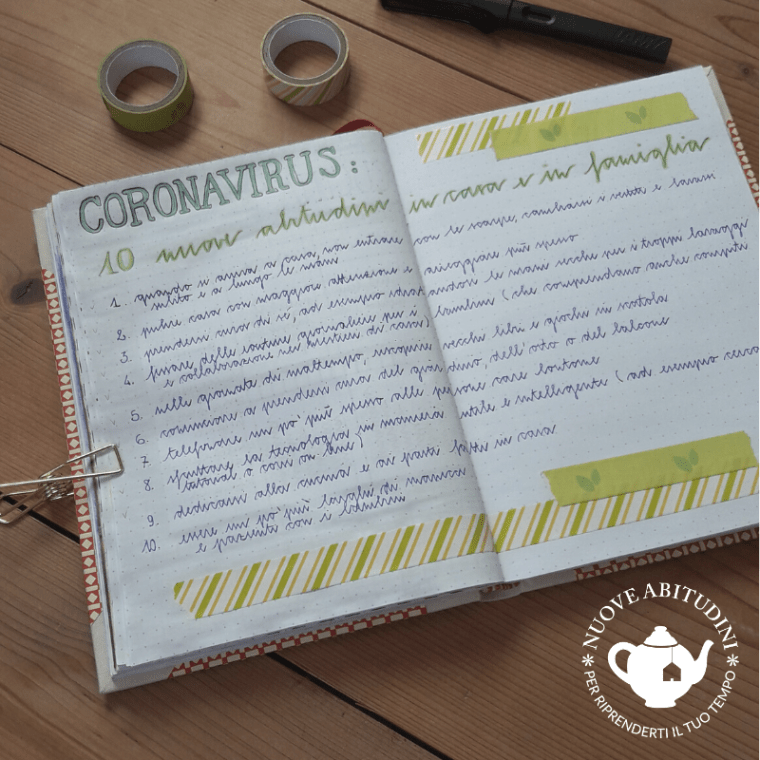 LAMY
CORONAVIRUS:
10 nuove abitudini in casa e in famiglia
1. quando si arriva a casa, non entrare con le scarpe, cambiarsi i vestiti e lavarsi
subito e a lungo le mani
2. pulire casa con maggiore attenzione e arieggiare più spesso
3. prendersi cura di sé, ad esempio idratandosi le mani secche per i troppi lavaggi
4. fissare delle routine giornaliere per i bambini (che comprendano anche compiti
e collaborazione nei mestieri di casa)
5. nelle giornate di maltempo, scoprire vecchi libri e giochi in scatola
6. cominciare a prendersi cura del giardino, dell'orto o del balcone
7. telefonare un po' più spesso alle persone care lontane
8. sfruttare la tecnologia in maniera utile e intelligente (ad esempio
tutorial o corsi on-line)
9. dedicarsi alla cucina e ai pasti fatti in casa
10. essere un po' più larghi di manica
e pazienti con i bambini
NUOVE ABITUDINI
* PER RIPRENDERTI IL TUO TEMPO *